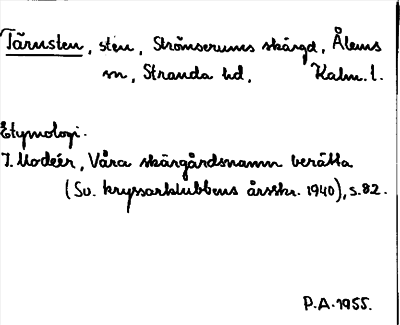 Tärnsten, sten, Strömserums skärgd, Ålems
sn, Stranda hd, Kalm. l.
Etymologi.
I. Modéer, Våra skärgårdsnamn berätta
(Sv. kryssarklubbens årsskr. 1940), s. 82.
P.A. 1955.